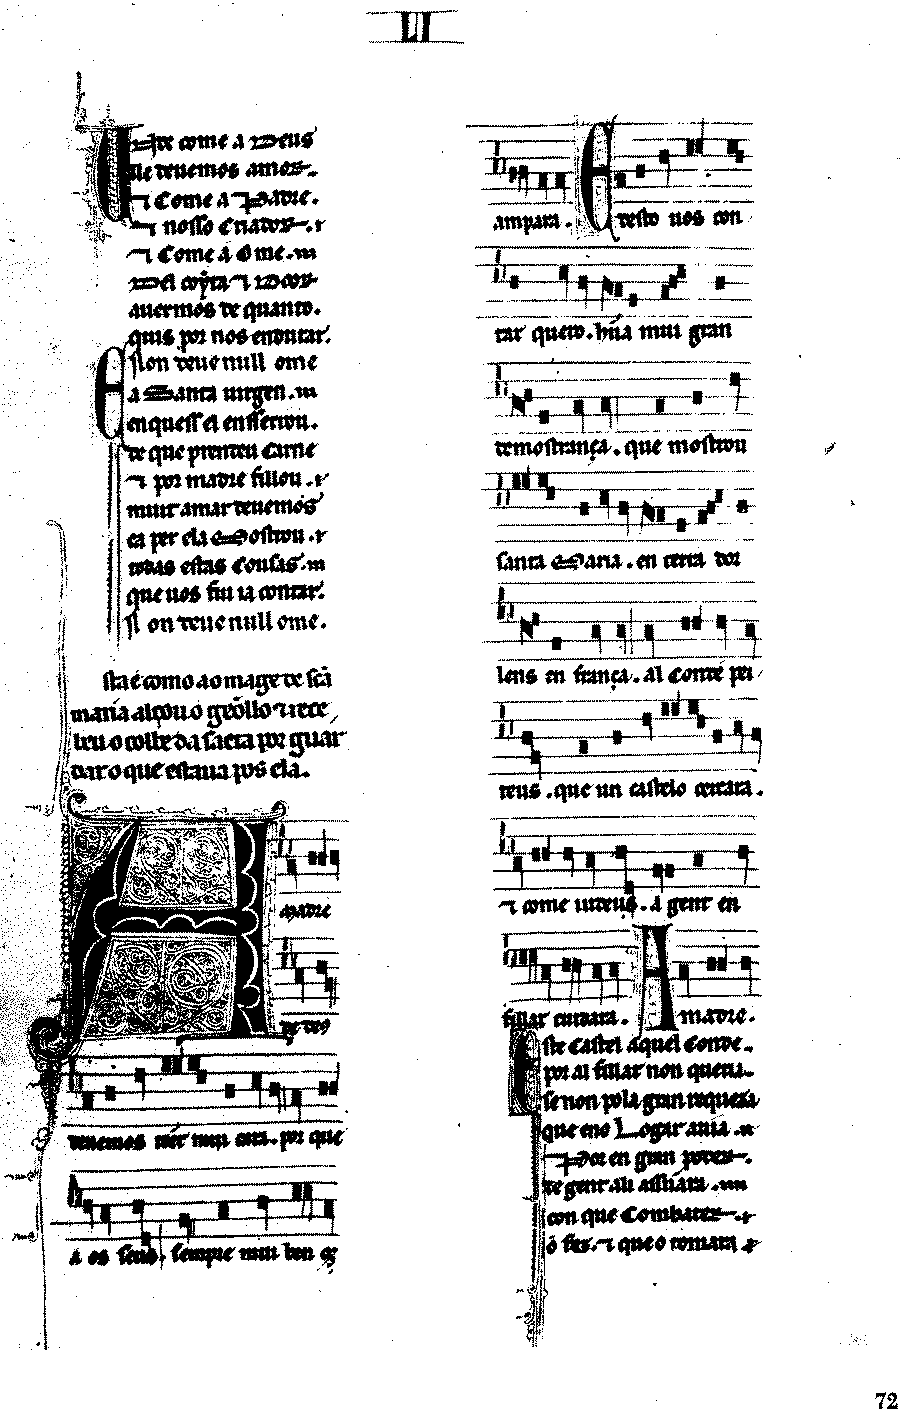 LI
Ade come a Deus
lle deuemos amor.
⁊ Come a Padre.
⁊ nosso Criador. ⁊
⁊ Come a Ome. ⁊
del coyta ⁊ door
auermos de quanto.
quis por nos endurar.
Non deue null ome
a Santa uirgen.
en quess el enserrou.
de que prendeu carne
⁊ por madre fillou. ⁊
muit amar deuemos
ca per ela Mostrou. ⁊
todas estas Cousas.
que uos fui ia contar.
Non deue null ome.
sta é como a omage de scã
maria alçou o gẽollo ⁊ rece
beu o colbe da saeta por guar
dar o que estaua pos ela.
A Madre
de deus
deuemos tẽer mui cara. por que
a os seus. sempre mui ben os
ampara. E desto uos con
tar quero. hũa mui gran
demostrança. que mostrou
santa Maria. en terra dor
lens en frança. al Conde pei
teus. que un castelo cercara.
⁊ come iudeus. a gent en
fillar cuidara. A madre.
Este Castel aquel Conde.
por al fillar non queria.
se non pola gran requeza
que eno Logar auia.
Por en gran poder.
de gent ali assũara.
con que Combater. ⁊
o fez. ⁊ que o tomara
72